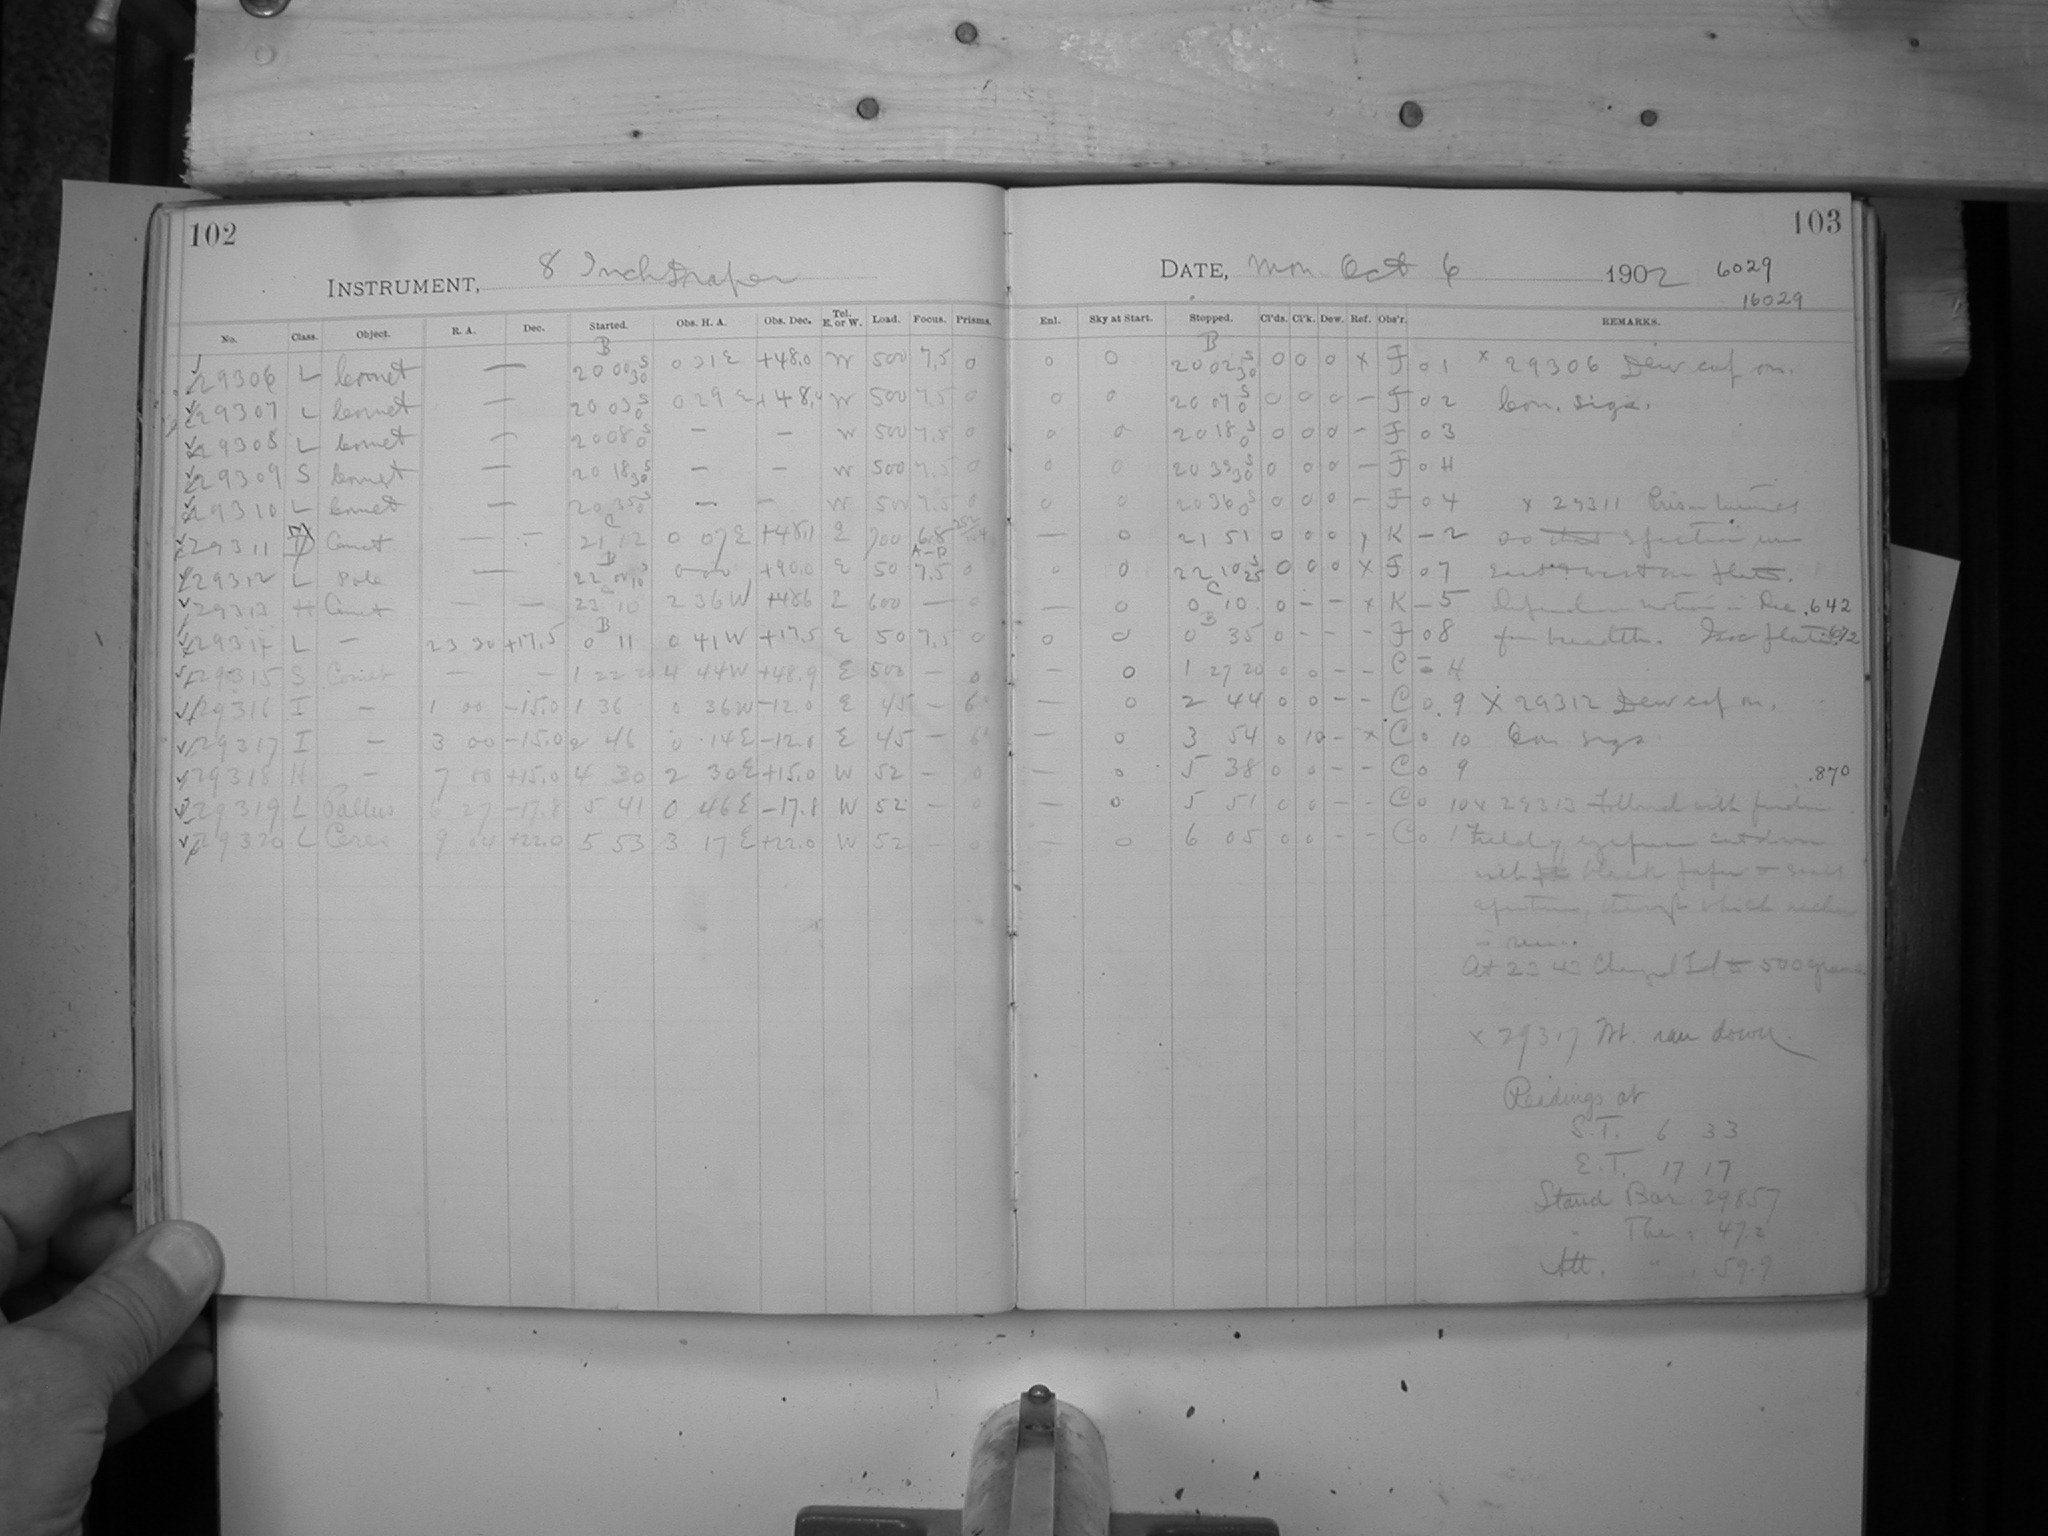 102
103
INSTRUMENT, 8 Inch Draper
DATE, Mon. Oct 6 1902 6029
16029
No. Class. Object. R. A. Dec. Started. Obs. H. A. Obs. Dec. Tel. E. or W. Load. Focus. Prisms.
Enl. Sky at Start. Stopped. Cl'ds. Cl'k. Dew. Ref. Obs'r. REMARKS.
29306 L Comet — B 20 00 30s 0 31 E +48.0 W 500 7.5 0
0 0 B 20 02 30s 0 0 0 x F 0 1 x 29306 Dew cap on.
29307 L Comet — 20 03 0s 0 29 E W 500 7.5 0
0 0 20 07 0s 0 0 0 – F 0 2 Con. sigs.
29308 L Comet — 20 08 0s – – W 500 7.5 0
0 0 20 18 0s 0 0 0 – F 0 3
29309 S Comet — 20 18 30s – – W 500 7.5 0
0 0 0 0 0 – F 0 H
29310 L Comet — 20 35 0s – – W 500 7.5 0
0 0 20 36 0s 0 0 0 – F 0 4 x 29311 Prism turned
29311 Comet — – C 21 12 0 07 E +48.1 E 700 6.8
— 0 21 51 0 0 0 x K – 2 so spectrum
A-P
29312 L Pole — B +90.0 E 50 7.5 0
0 0 22 10 25s 0 0 0 x F 0 7
29313 H Comet — — C 23 10 2 36 W +48.6 E 600 — 0
— 0 C 0 10 0 – – x K – 5 Dec. .642
29314 L – 23 30 +17.5 B 0 11 0 41 W +17.5 E 50 7.5 0
0 0 B 0 35 0 – – – F 0 8 for breadth.
29315 S Comet — – 1 22 20 4 44 W +48.9 E 500 – 0
— 0 1 27 20 0 0 – – C – H
29316 I – 1 00 –15.0 1 36 0 36 W –12.0 E 45 – 6
— 0 2 44 0 0 – – C 0 9 X 29312 Dew cap on.
29317 I – 3 00 –15.0 2 46 0 14 E –12.0 E 45 – 6
— 0 3 54 0 10 – x C 0 10 Con. sigs.
29318 H – 7 00 +15.0 4 30 2 30 E +15.0 W 52 – 0
— 0 5 38 0 0 – – C 0 9 .870
29319 L Pallas 6 27 –17.8 5 41 0 46 E –17.8 W 52 – 0
— 0 5 51 0 0 – – C 0 10 x 29313 Followed with finder
29320 L Ceres 9 04 +22.0 5 53 3 17 E +22.0 W 52 – 0
— 0 6 05 0 0 – – C 0 1 Field of eyepiece cut down
with black paper
aperture, through which
is seen.
At 23 43 Changed Ld to 500 grams
x 29317 Wt. ran down.
Readings at
S.T. 6 33
E.T. 17 17
Stand Bar. 29.857
" Ther. 47.2
Att. " 59.9